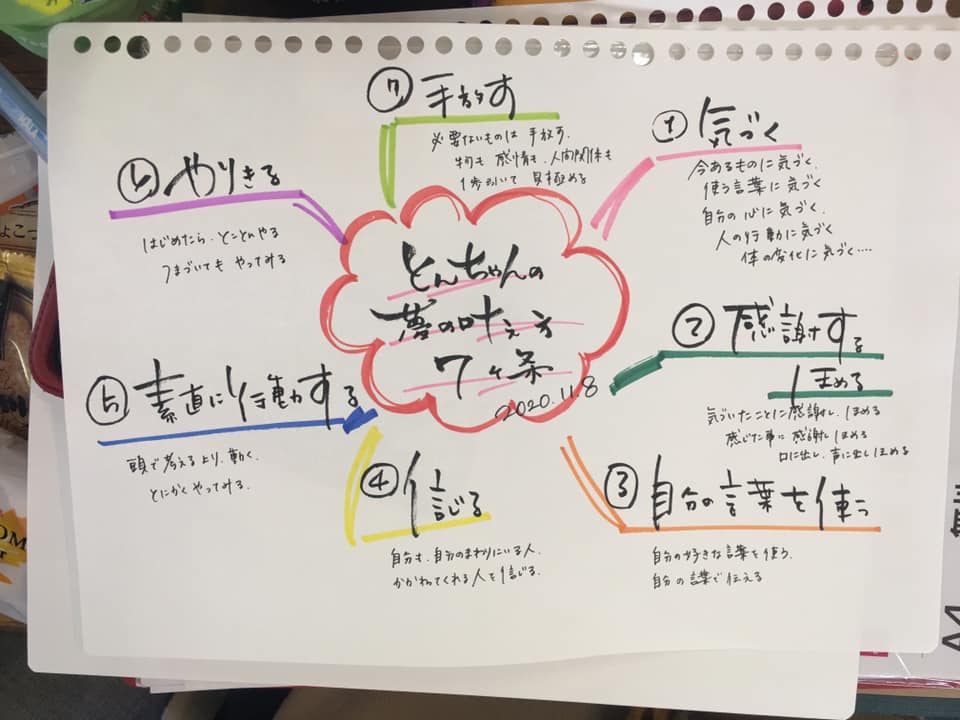 とんちゃんの
夢の叶え方
7ヶ条
2020.11.8
① 気づく
今あるものに気づく、
使う言葉に気づく
自分の心に気づく、
人の行動に気づく
体の変化に気づく‥‥
② 感謝する
ほめる
気づいたことに感謝し、ほめる
感じた事に感謝しほめる
口に出し、声に出しほめる
③ 自分の言葉を使う
自分の好きな言葉を使う、
自分の言葉で伝える
④ 信じる
自分も、自分のまわりにいる人、
かかわってくれる人を信じる、
⑤ 素直に行動する
頭で考えるより、動く、
とにかくやってみる、
⑥ やりきる
はじめたら、とことんやる
つまづいても やってみる
⑦ 手放す
必要ないものは 手放す、
物も 感情も、人間関係も
1歩引いて 見極める